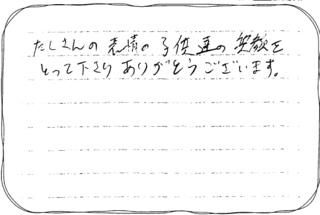 たくさんの表情の子供達の笑顔を
とって下さり ありがとうございます。